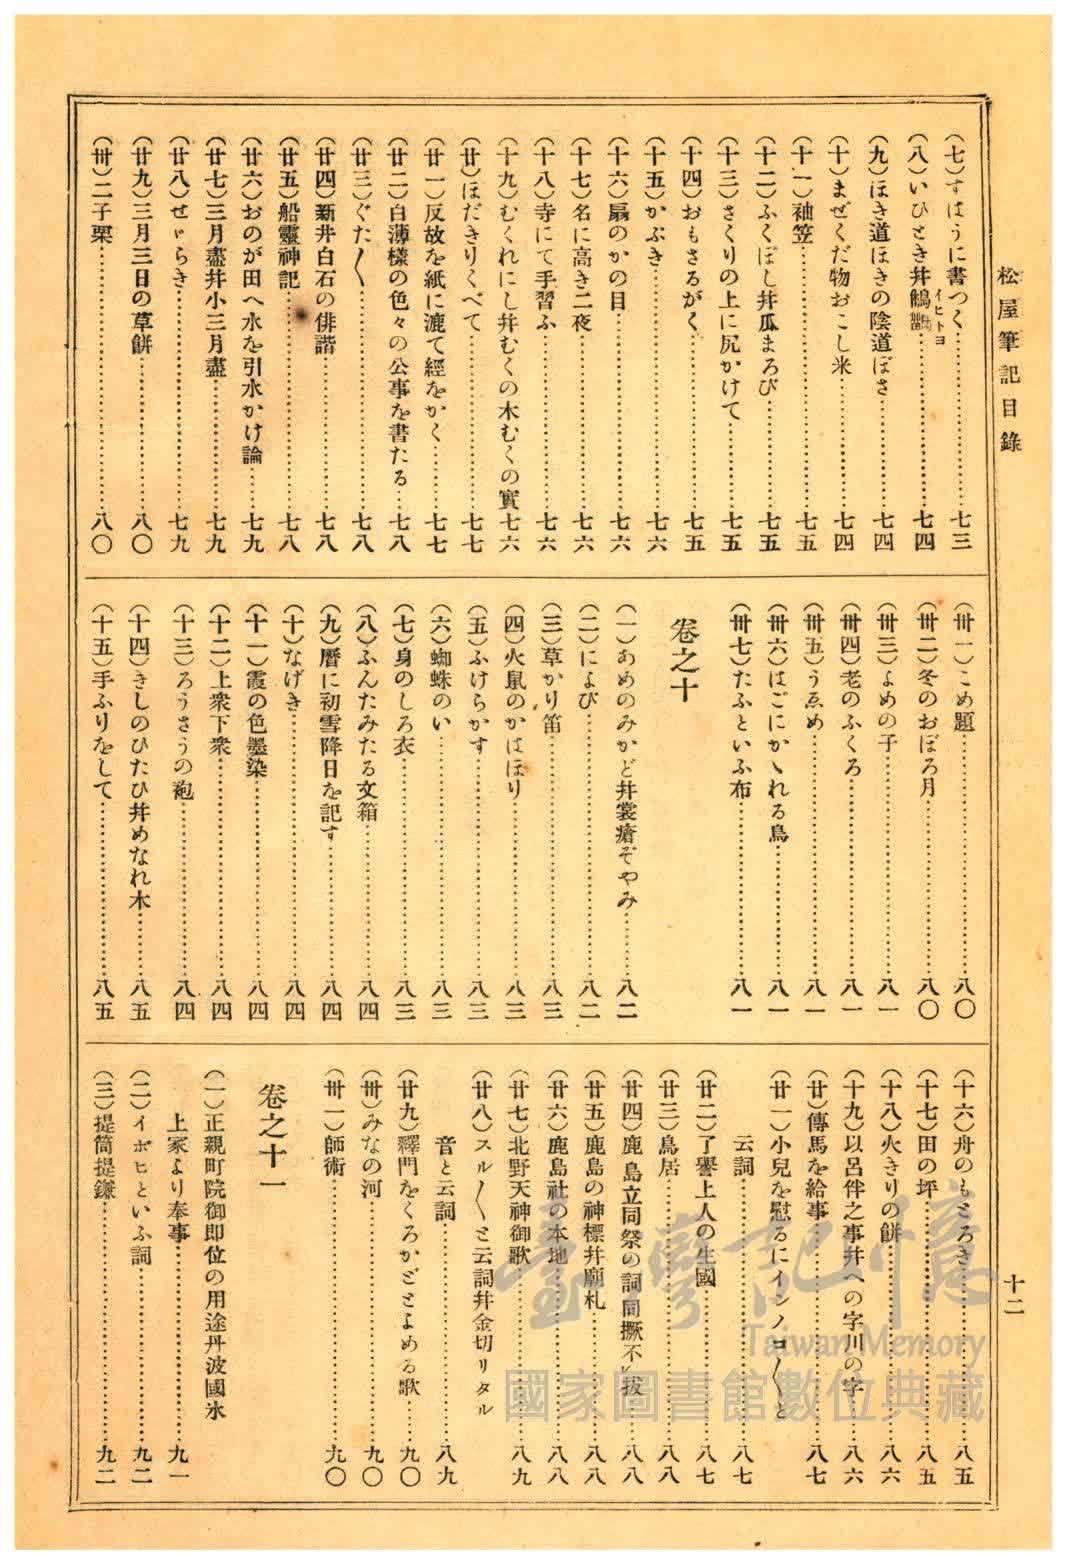 松屋筆記目錄
十二
(七)すはうに書つく……七三
(八)いひとき幷鵂鶹イヒトヨ……七四
(九)ほき道ほきの陰道ぼさ……七四
(十)まぜくだ物おこし米……七四
(十一)袖笠……七五
(十二)ふくぼし幷瓜まろび……七五
(十三)さくりの上に尻かけて……七五
(十四)おもさるがく……七五
(十五)かぶき……七六
(十六)扇のかの目……七六
(十七)名に高き二夜……七六
(十八)寺にて手習ふ……七六
(十九)むくれにし幷むくの木むくの實七六
(廿)ほだきりくべて……七七
(廿一)反故を紙に漉て經をかく……七七
(廿二)白薄樣の色々の公事を書たる……七八
(廿三)ぐた〱……七八
(廿四)新井白石の俳諧……七八
(廿五)船靈神記……七八
(廿六)おのが田へ水を引水かけ論……七九
(廿七)三月盡幷小三月盡……七九
(廿八)せゝらき……七九
(廿九)三月三日の草餅……八〇
(卅)二子栗……八〇
(卅一)こめ題……八〇
(卅二)冬のおぼろ月……八〇
(卅三)よめの子……八一
(卅四)老のふくろ……八一
(卅五)うゑめ……八一
(卅六)はごにかゝれる鳥……八一
(卅七)たふといふ布……八一
卷之十
(一)あめのみかど幷裳瘡ぞやみ……八二
(二)によび……八二
(三)草かり笛……八三
(四)火鼠のかはほり……八三
(五)ふけらかす……八三
(六)蜘蛛のい……八三
(七)身のしろ衣……八三
(八)ふんたみたる文箱……八四
(九)曆に初雪降日を記す……八四
(十)なげき……八四
(十一)霞の色墨染……八四
(十二)上衆下衆……八四
(十三)ろうさうの袍……八四
(十四)きしのひたひ幷めなれ木……八五
(十五)手ふりをして……八五
(十六)舟のもとろき……八五
(十七)田の坪……八五
(十八)火きりの餅……八六
(十九)以呂伴之事幷への字川の字……八六
(廿)傳馬を給事……八七
(廿一)小兒を慰るにインノコ〱と
云詞……八七
(廿二)了譽上人の生國……八七
(廿三)鳥居……八八
(廿四)鹿島立同祭の詞同撅不レ拔……八八
(廿五)鹿島の神標幷廟札……八八
(廿六)鹿島社の本地……八八
(廿七)北野天神御歌……八九
(廿八)スル〱と云詞幷金切リタル
音と云詞……八九
(廿九)釋門をくろかどとよめる歌……九〇
(卅)みなの河……九〇
(卅一)師術……九〇
卷之十一
(一)正親町院御即位の用途丹波國氷
上家より奉事……九一
(二)イボヒといふ詞……九二
(三)提筒提鎌……九二
臺灣記憶
Taiwan Memory
國家圖書館數位典藏